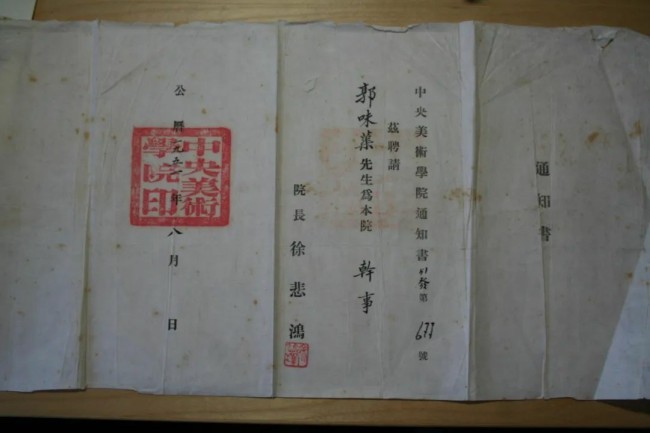 通知書
中央美術學院通知書 第 677 號
茲聘請
郭味蕖先生爲本院 幹事
院長 徐悲鴻
公曆一九五一年八月 日
中央美術學院印